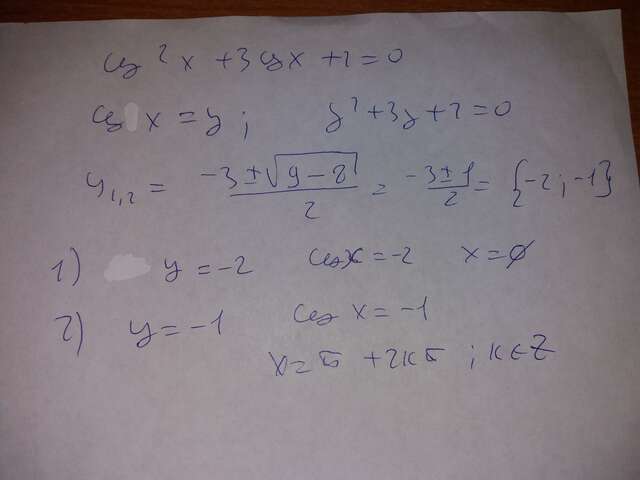 cos²x + 3cosx + 2 = 0
cos x = y; y² + 3y + 2 = 0
y₁,₂ = (-3 ± √(9 - 8)) / 2 = (-3 ± 1) / 2 = {-2; -1}
1) y = -2 cosx = -2 x = ∅
2) y = -1 cos x = -1
x = π + 2kπ ; k ∈ Z